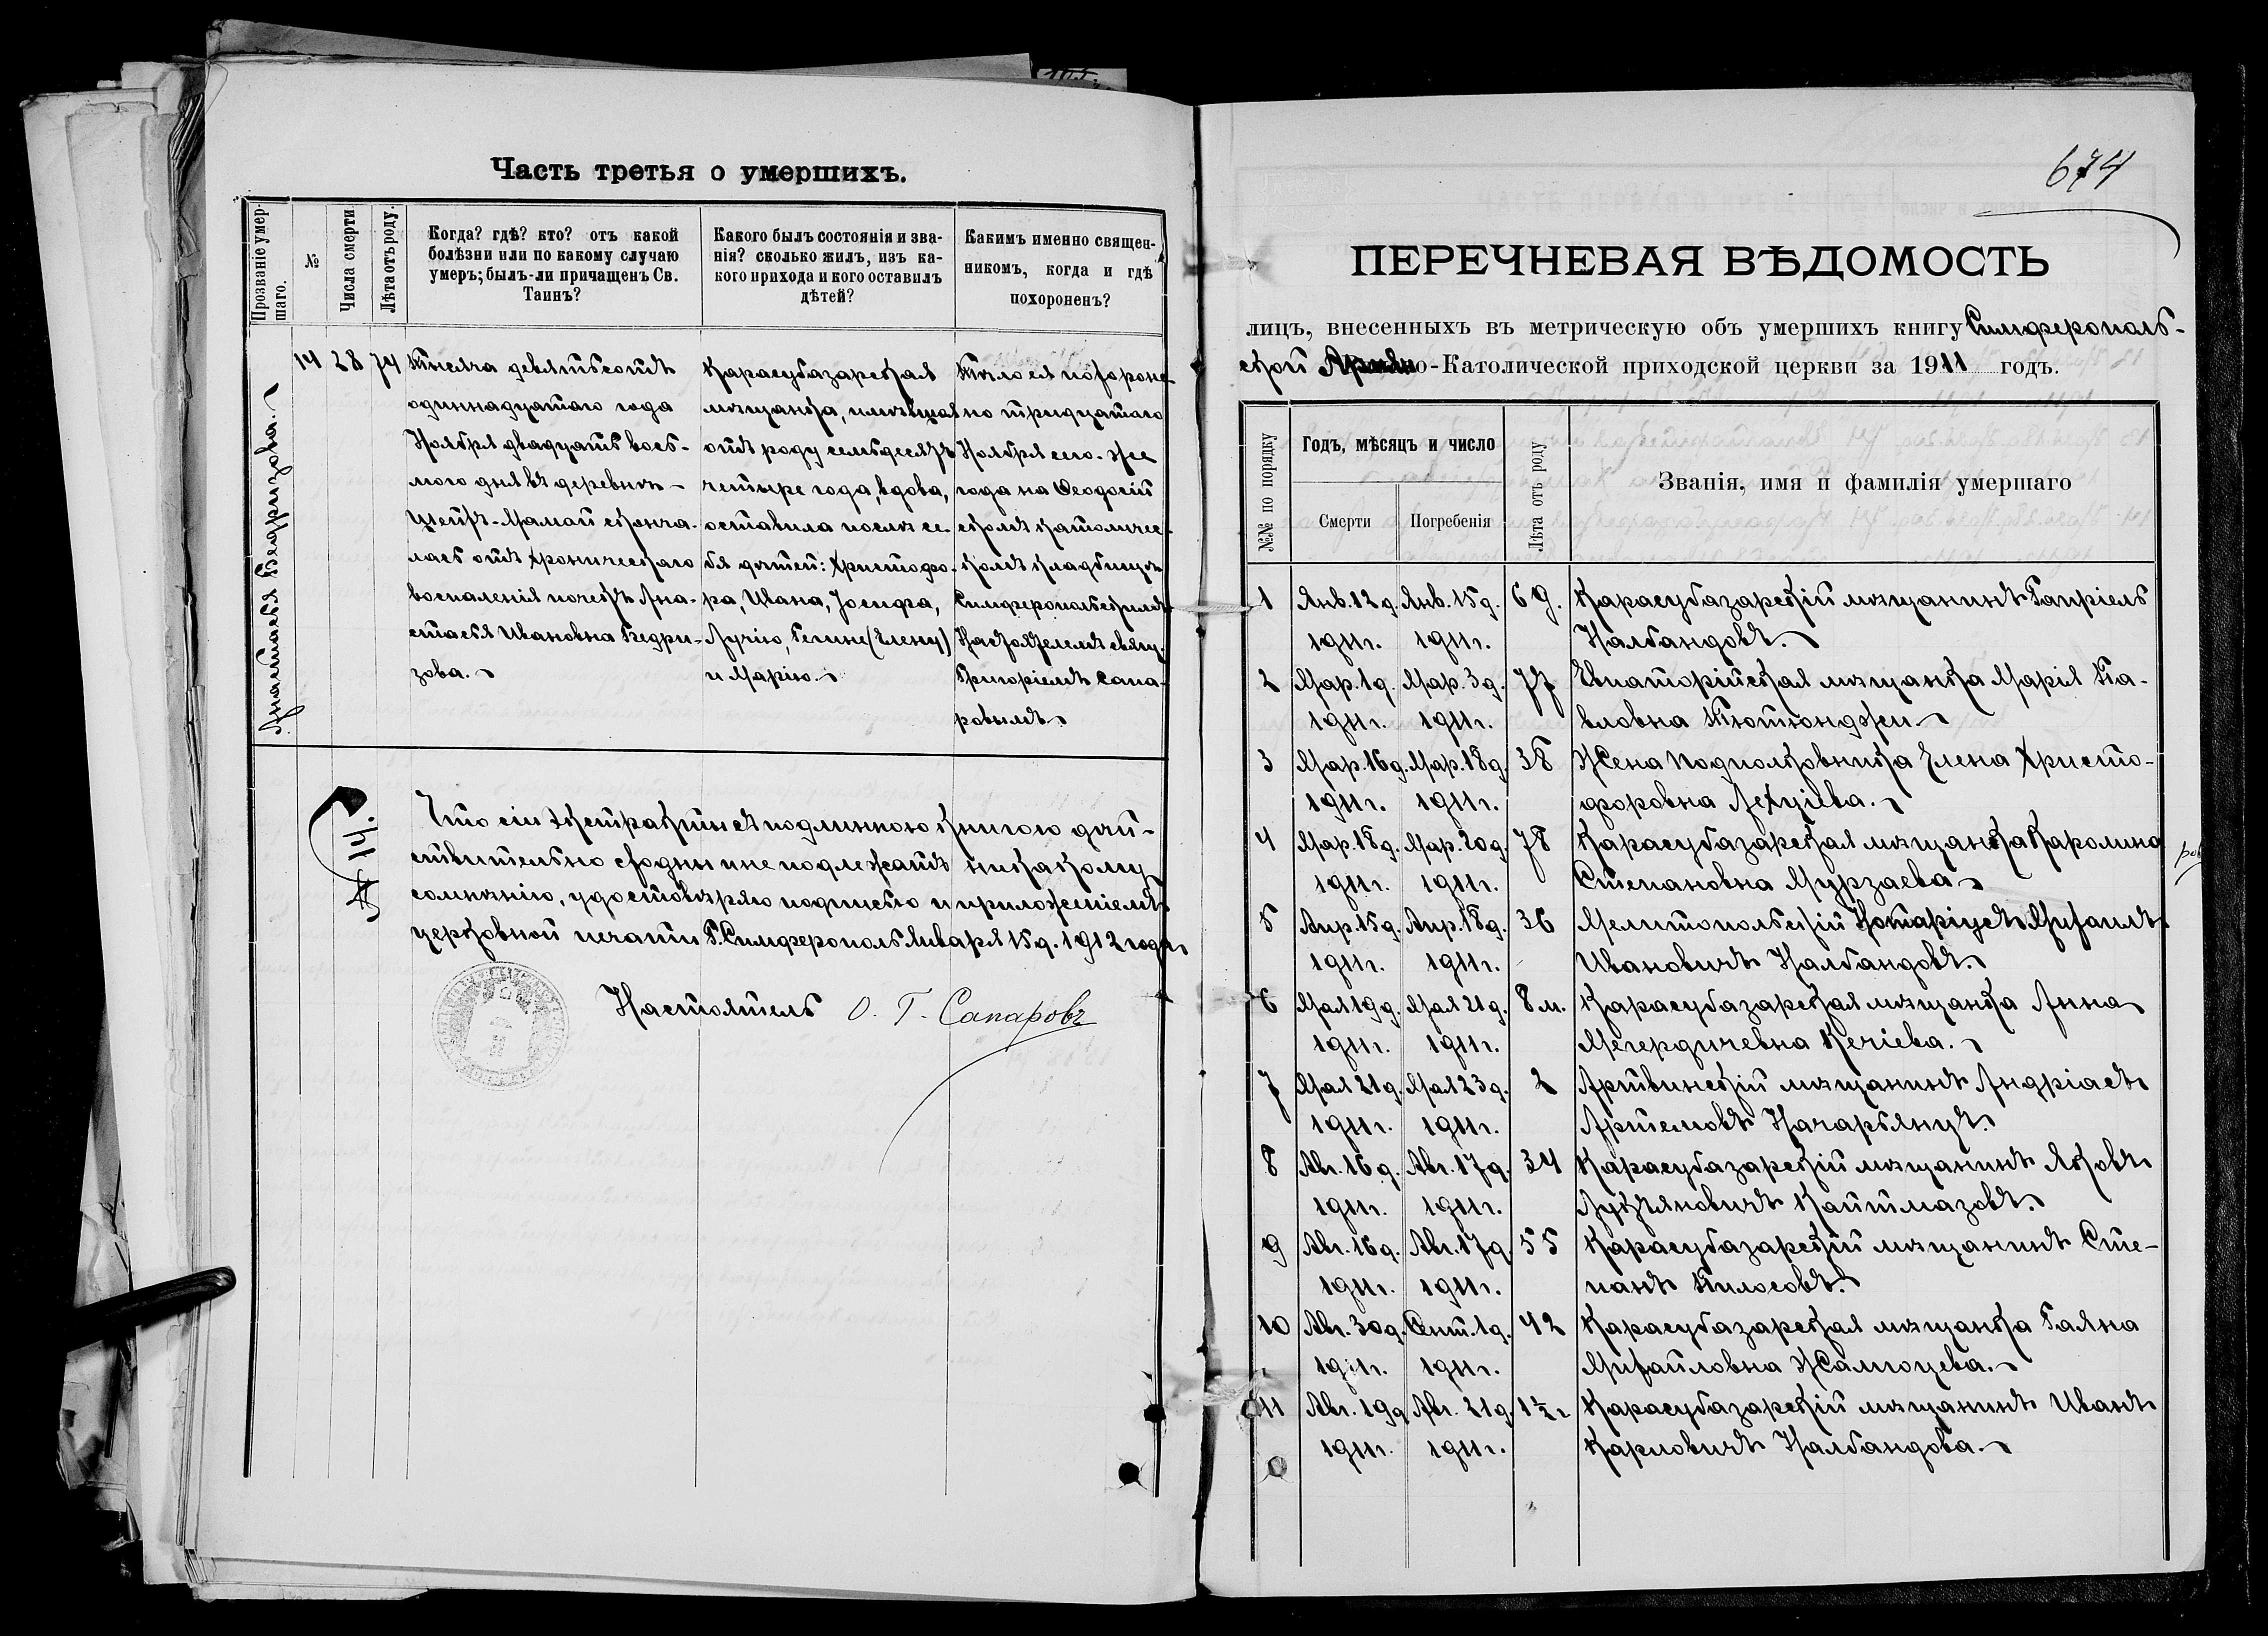 Часть третья о умершихъ.
Прозваніе умер-
шаго.
№
Числа смерти
Лѣта отъ роду.
Когда? гдѣ? кто? отъ какой
болѣзни или по какому случаю
умеръ; былъ-ли причащенъ Св.
Таинъ?
Какого былъ состоянія и зва-
нія? сколько жилъ, изъ ка-
кого прихода и кого оставилъ
дѣтей?
Какимъ именно священ-
никомъ, когда и гдѣ
похороненъ?
Анастасія Бедризова.
14
28
74
Тысяча девятьсотъ
одиннадцатаго года
Ноября двадцать вось-
мого дня въ деревнѣ
Шейхъ-Мамай сконча-
лась отъ хроническаго
воспаленія почекъ Ана-
стасія Ивановна Бедри-
зова.
Карасубазарская
мѣщанка, имѣвшая
отъ роду семьдесятъ
четыре года, вдова,
оставила послѣ се-
бя дѣтей: Христофо-
ра, Ивана, Іосифа,
Лучію, Гегине (Елену)
и Марію.
Тѣло ея похороне-
но тридцатаго
Ноября сего-же
года на Ѳеодосій
скомъ католичес-
комъ кладбищѣ
Симферопольскимъ
Настоятелемъ свящ.
Григоріемъ Сапа-
ровымъ.
14.
Что сіи Экстракты съ подлинною книгою дѣй-
ствительно сходны и не подлежатъ никакому
сомнѣнію, удостовѣряю подписью и приложеніемъ
церковной печати Г. Симферополь Января 15 д. 1912 года
Настоятель О. Г. Сапаровъ
674
ПЕРЕЧНЕВАЯ ВѢДОМОСТЬ
лицъ, внесенныхъ въ метрическую объ умершихъ книгу Симферополь-
ской Армяно-Католической приходской церкви за 1911 годъ.
№№ по порядку
Годъ, мѣсяцъ и число
Смерти
Погребенія
Лѣта отъ роду
Званія, имя и фамилія умершаго
1 Янв. 12 д. Янв. 15 д. 69. Карасубазарскій мѣщанинъ Гапріель
1911 г. 1911 г. Налбандовъ.
2 Мар. 1 д. Мар. 3 д. 77 Евпаторійская мѣщанка Марія Па-
1911 г. 1911 г. вловна Тютюнджи.
3 Мар. 16 д. Мар. 18 д. 38 Жена Подполковника Елена Христо-
1911 г. 1911 г. форовна Лехціева.
4 Мар. 18 д. Мар. 20 д. 78 Карасубазарская мѣщанка Каролина
1911 г. 1911 г. Степановна Мурзаева
5 Апр. 15 д. Апр. 18 д. 36 Мелитопольскій Нотаріусъ Михаилъ
1911 г. 1911 г. Ивановичъ Налбандовъ.
6 Мая 19 д. Мая 21 д. 8 м. Карасубазарская мѣщанка Анна
1911 г. 1911 г. Мегердичевна Кечіева.
7 Мая 21 д. Мая 23 д. 2 Артвинскій мѣщанинъ Андріасъ
1911 г. 1911 г. Артемовъ Начарьянцъ.
8 Авг. 16 д. Авг. 17 д. 34 Карасубазарскій мѣщанинъ Яковъ
1911 г. 1911 г. Лукьяновичъ Кайтмазовъ.
9 Авг. 16 д. Авг. 17 д. 55 Карасубазарскій мѣщанинъ Сте-
1911 г. 1911 г. панъ Тилосовъ.
10 Авг. 30 д. Сент. 1 д. 42 Карасубазарская мѣщанка Гаяна
1911 г. 1911 г. Михайловна Жамгоцева.
11 Авг. 19 д. Авг. 21 д. 1½ г. Карасубазарскій мѣщанинъ Иванъ
1911 г. 1911 г. Карповичъ Налбандова.